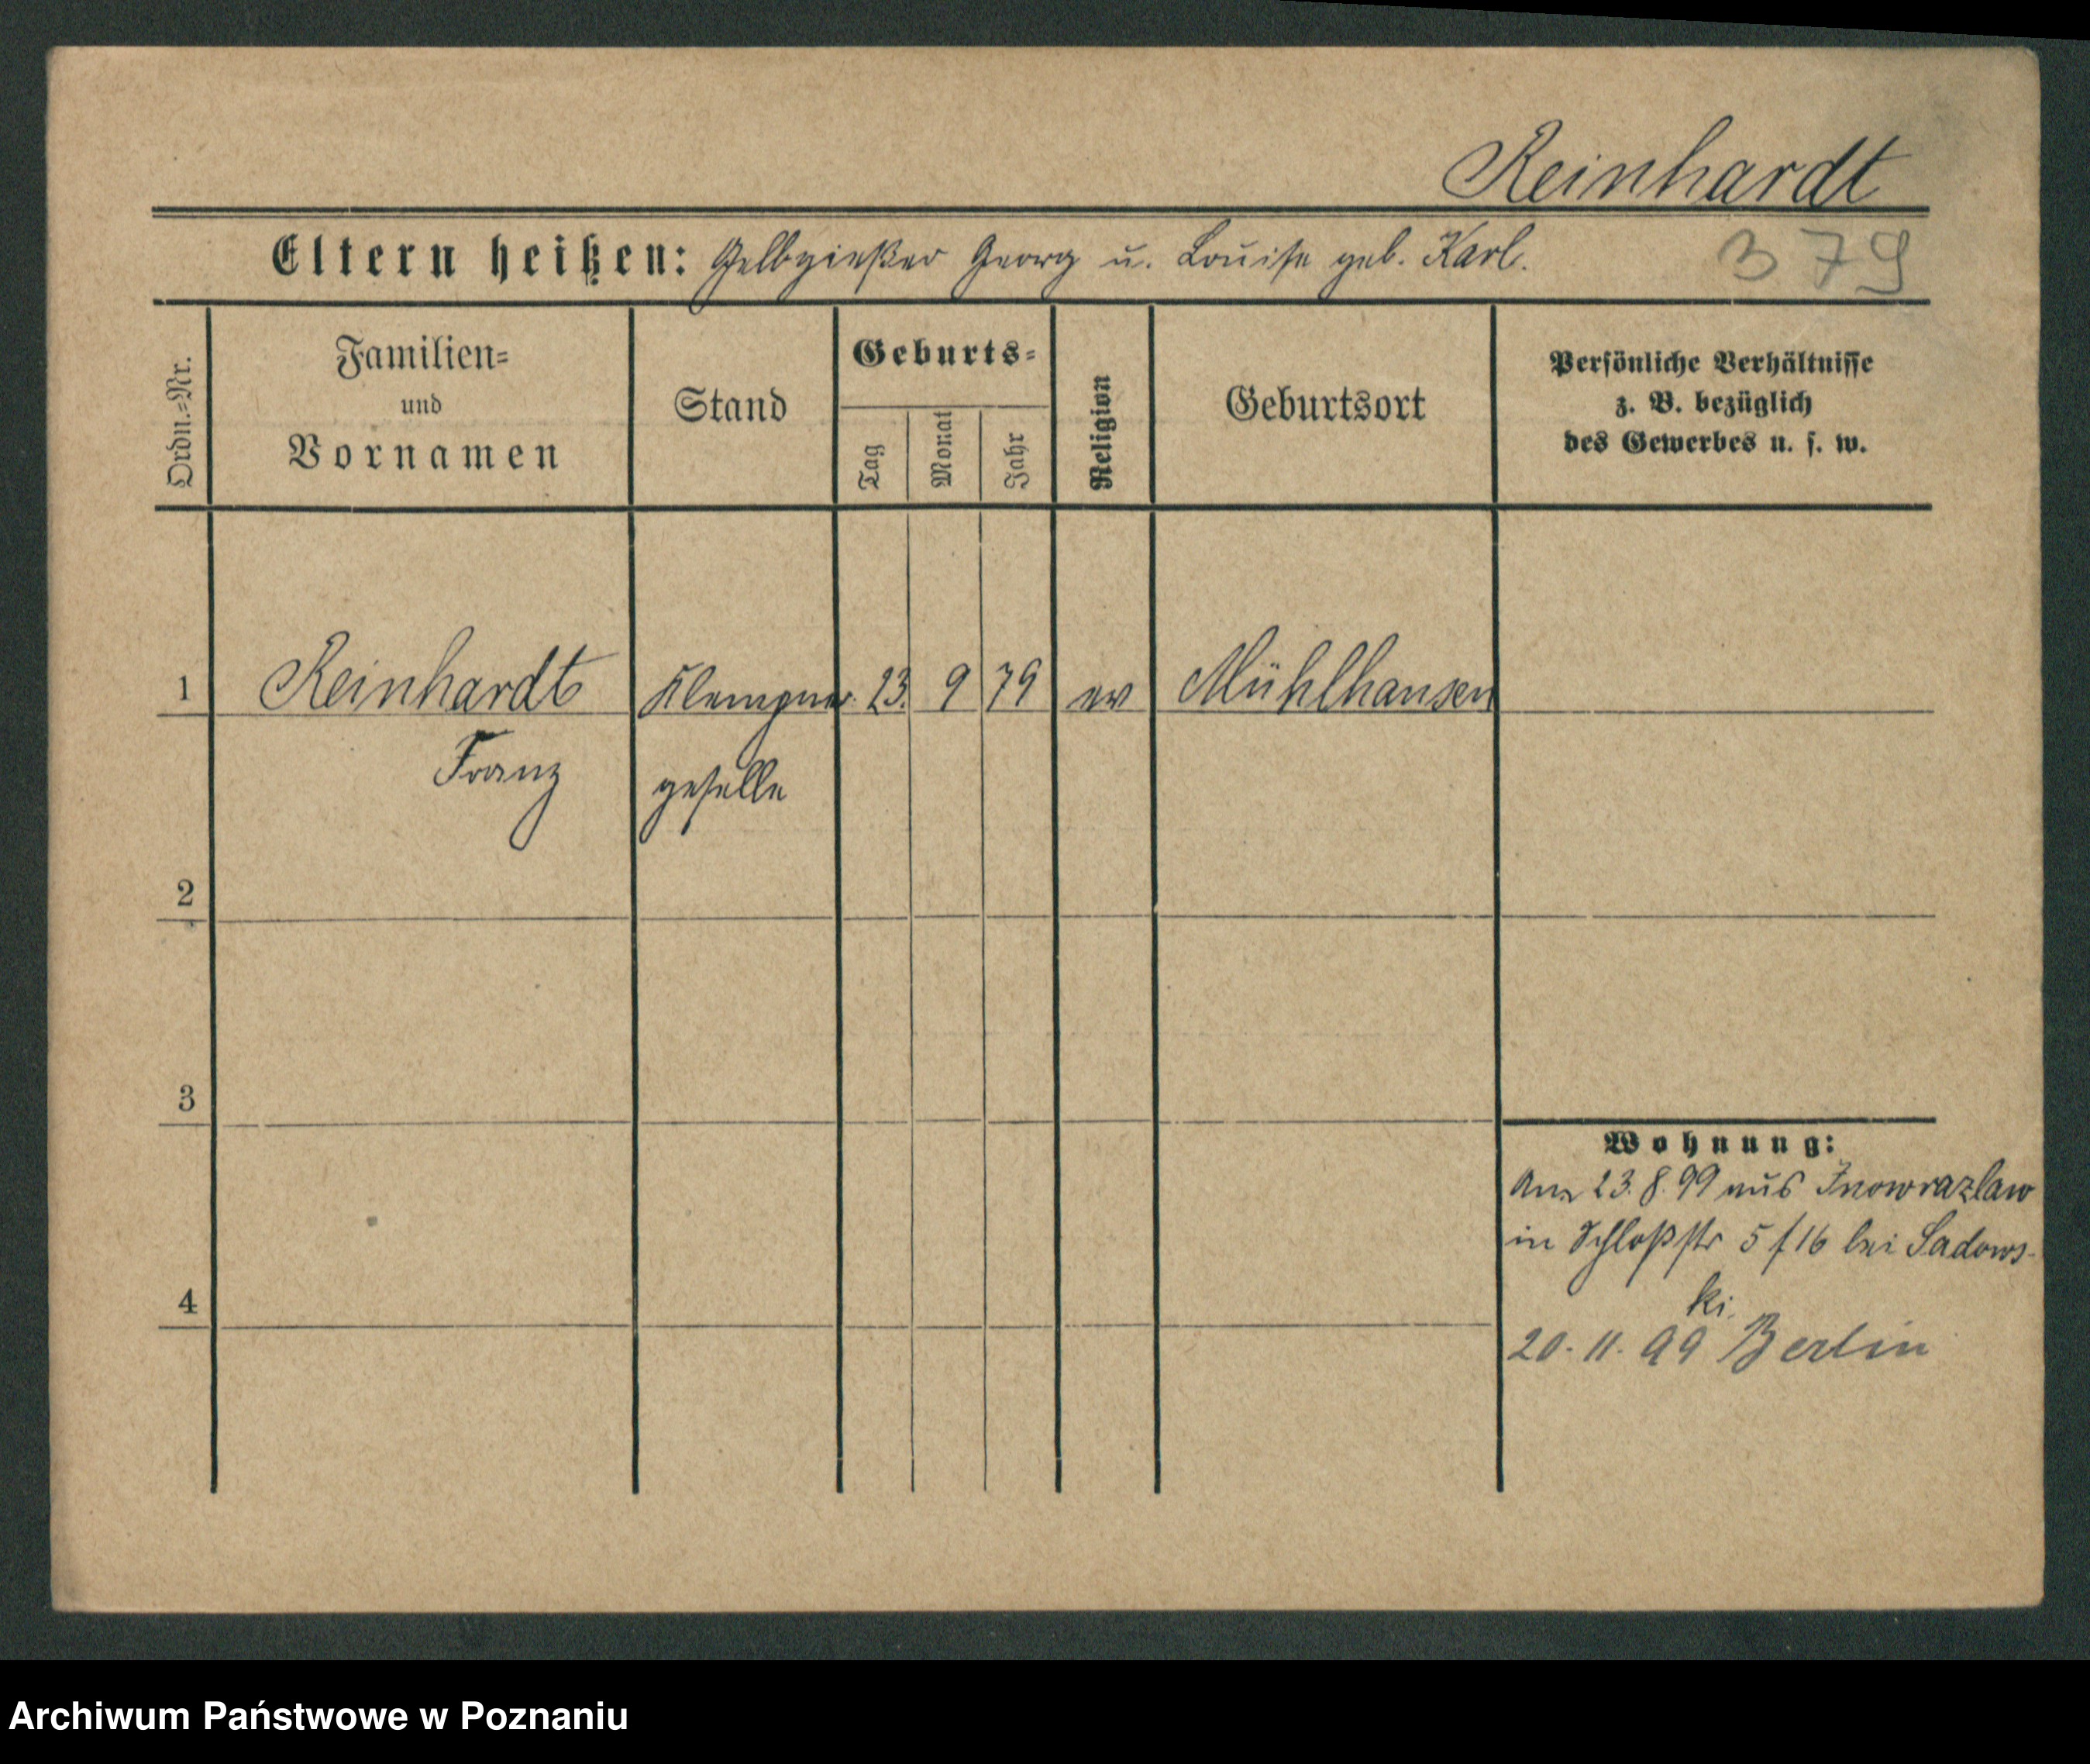 Reinhardt
Eltern heißen: Gelbgießer Georg u. Louise geb. Karl.
379
Ordn.=Nr.
Familien=
und
Vornamen
Stand
Geburts=
Tag
Monat
Jahr
Religion
Geburtsort
Persönliche Verhältnisse
z. B. bezüglich
des Gewerbes u. s. w.
1 Reinhardt Klempner 23. 9 79 ev Mühlhausen
Franz geselle
2
3
Wohnung:
23.8.99 aus Inowrazlaw
in Schloßstr 5 f 16 bei Sadows-
ki.
4
20.11.99 Berlin
Archiwum Państwowe w Poznaniu